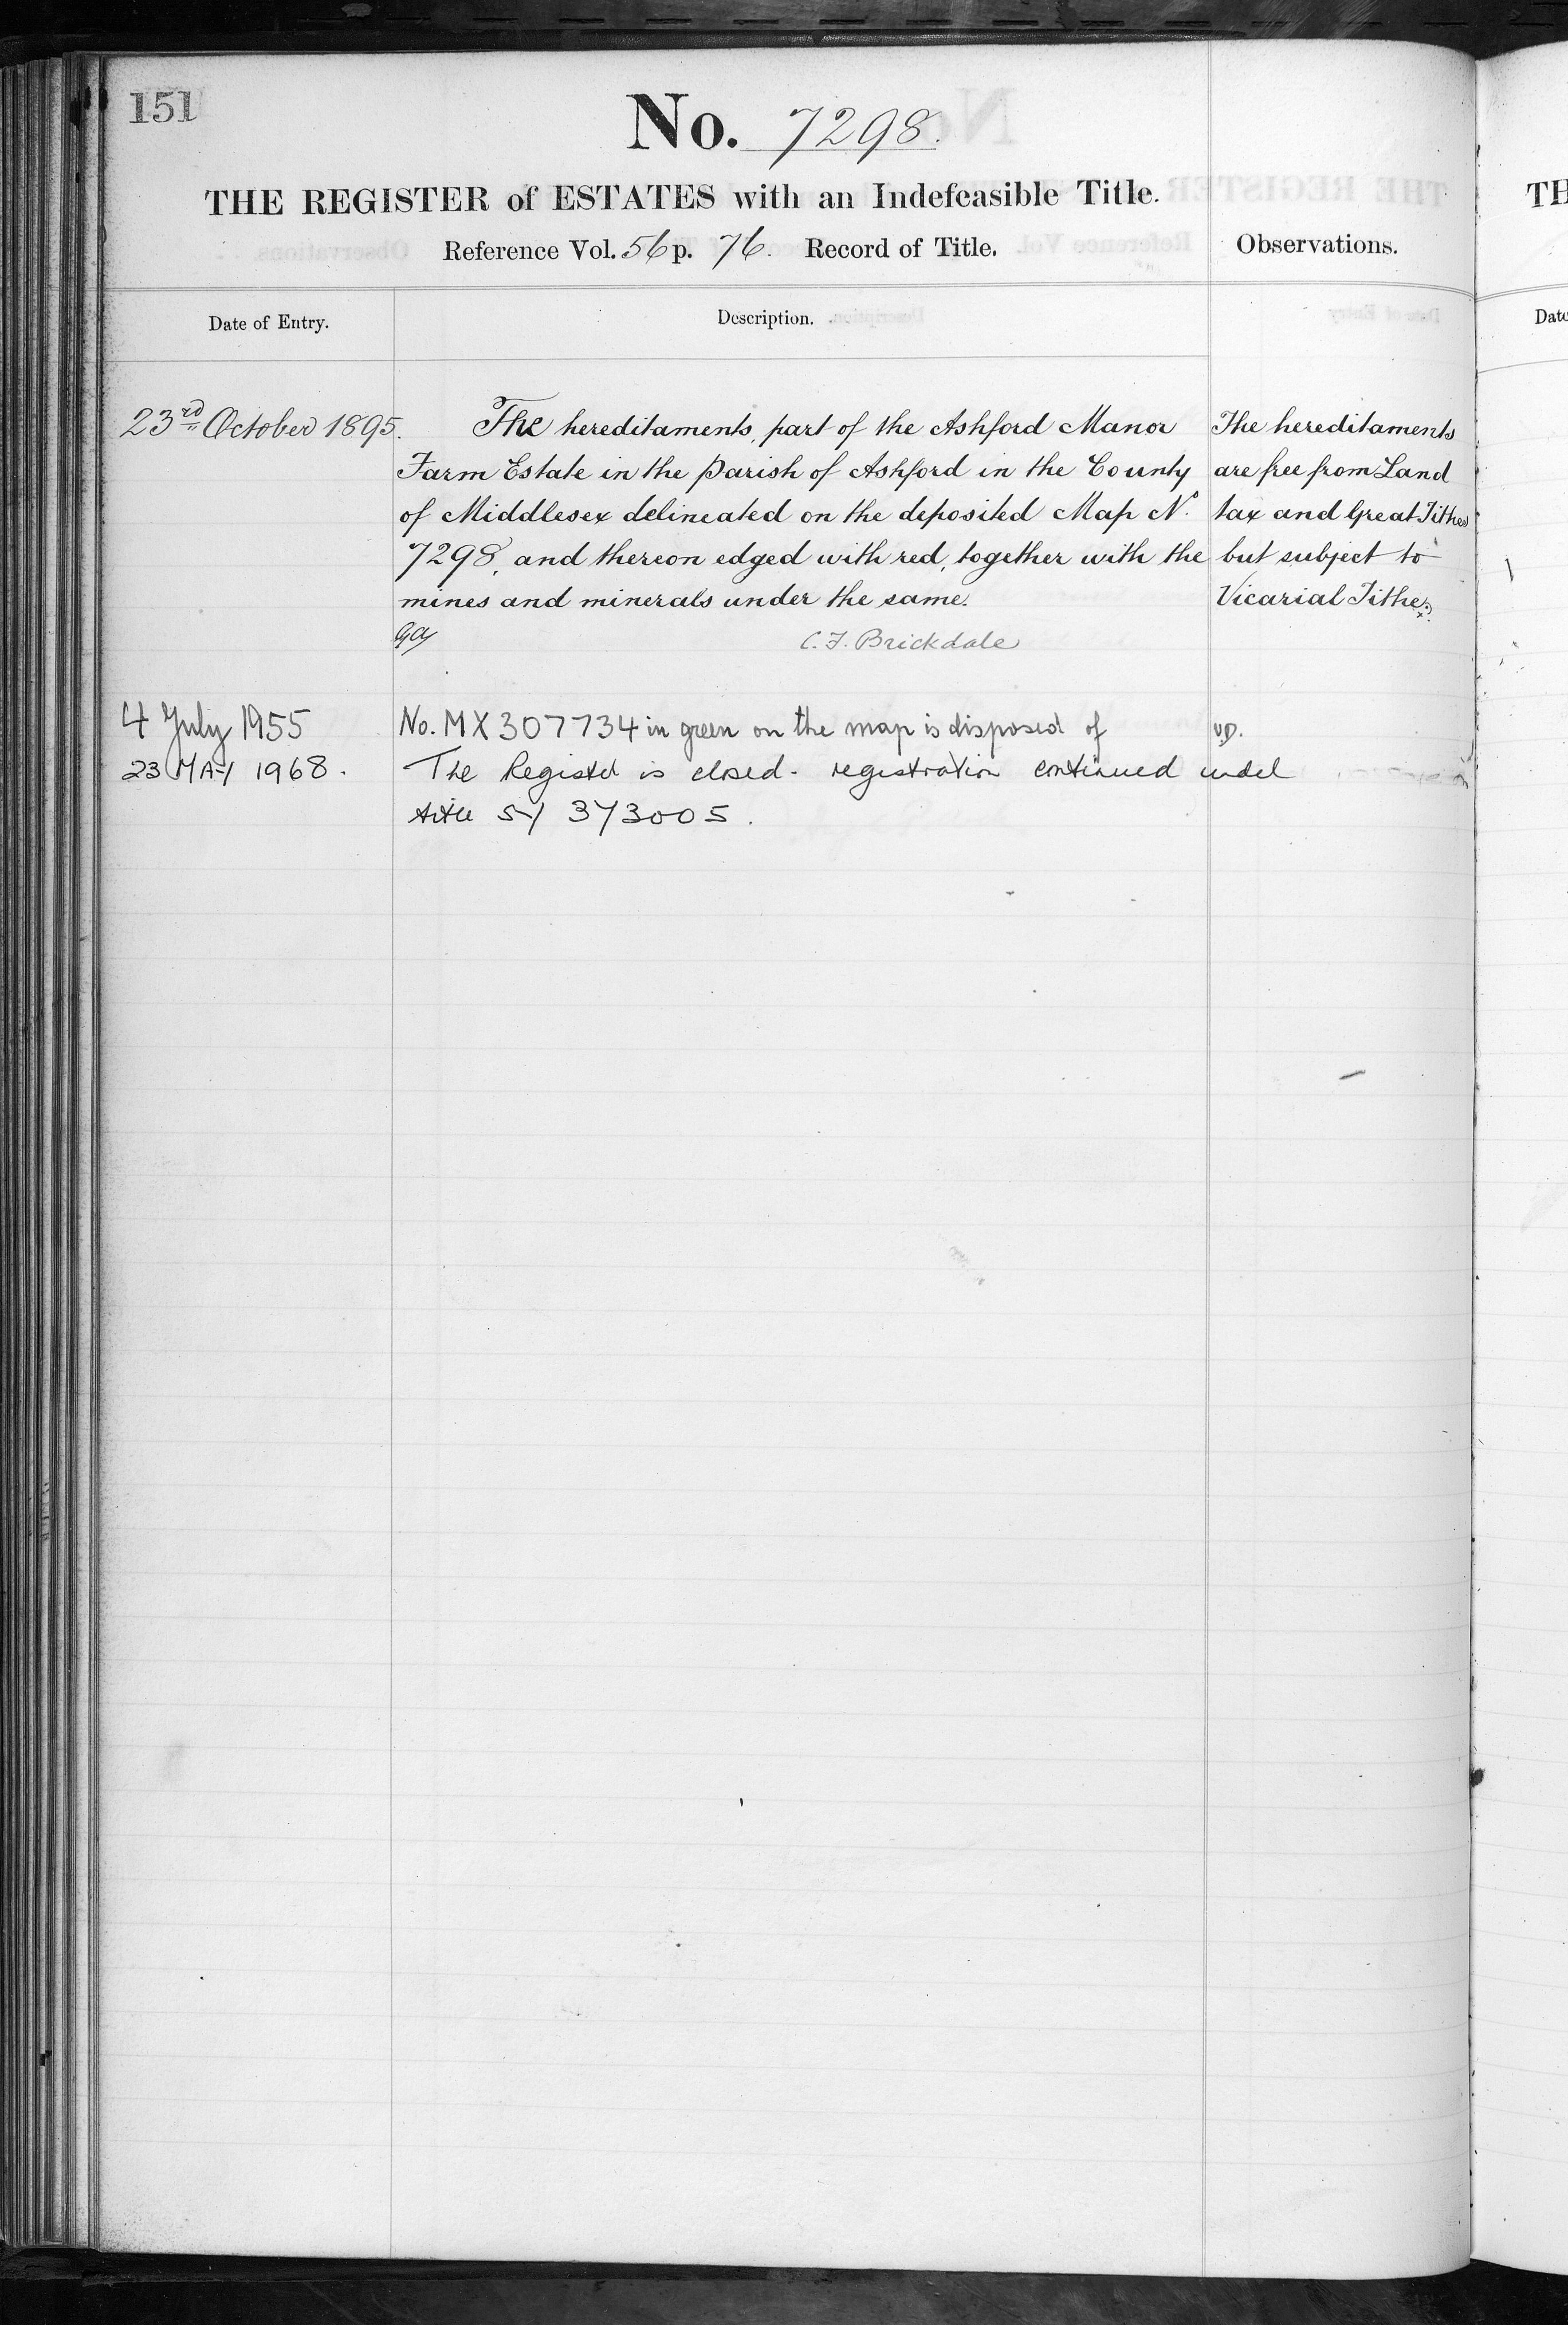 151
No. 7298.
THE REGISTER of ESTATES with an Indefeasible Title.
Reference Vol. 56 p. 76. Record of Title.
Observations.
Date of Entry.
Description.
23rd October 1895.
The hereditaments, part of the Ashford Manor
Farm Estate in the Parish of Ashford in the County
of Middlesex delineated on the deposited Map No.
7298, and thereon edged with red, together with the
mines and minerals under the same.
C. F. Brickdale
The hereditaments
are free from Land
tax and Great Tithes
but subject to
Vicarial Tithes.
4 July 1955
No. MX 307734 in green on the map is disposed of
23 MAY 1968.
The Register is closed - registration continued under
title SY 373005.
TH
Date